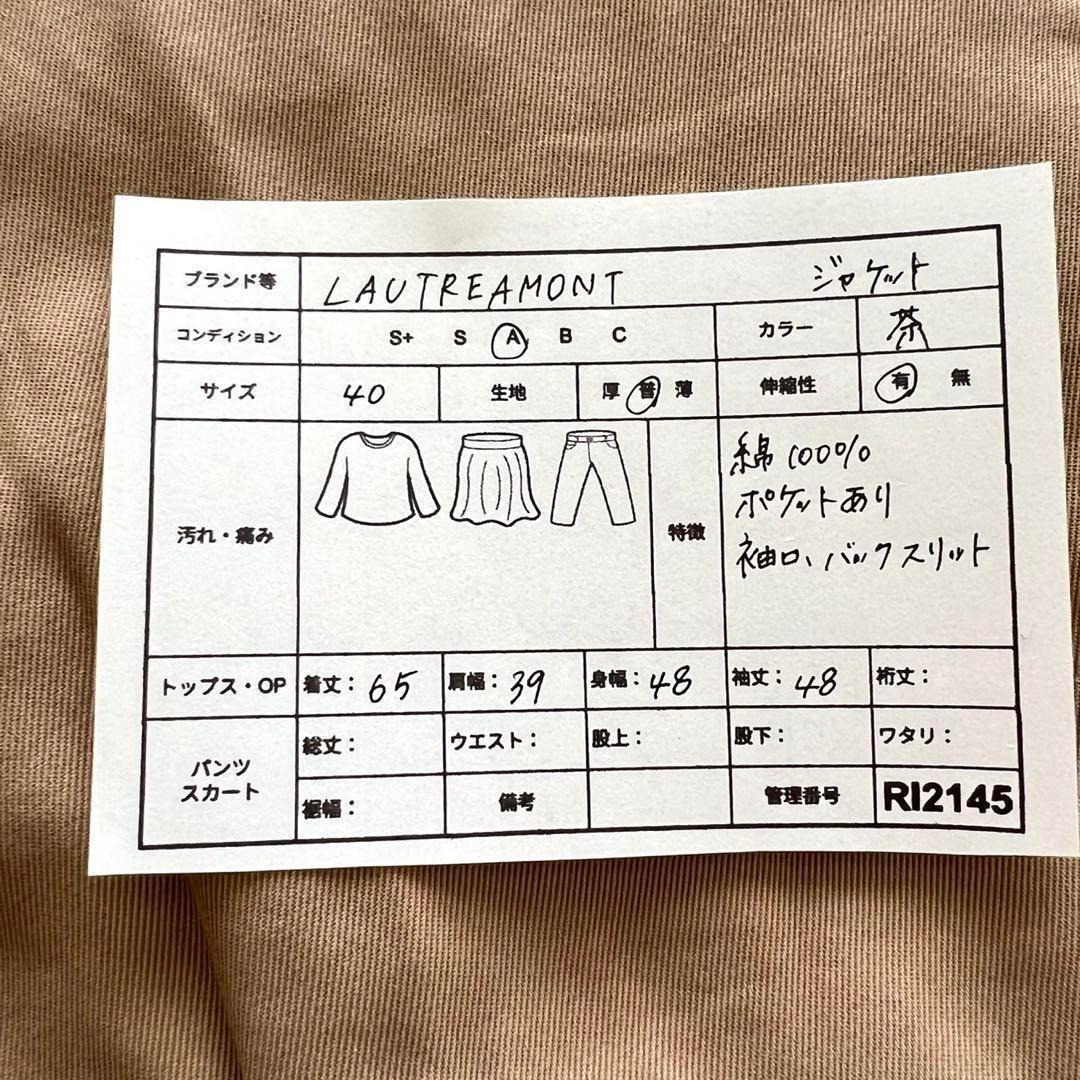 ブランド等 LAUTREAMONT ジャケット
コンディション S+ S A B C カラー 茶
サイズ 40 生地 厚 普 薄 伸縮性 有 無
汚れ・痛み 特徴
綿100%
ポケットあり
袖口、バックスリット
トップス・OP 着丈：65 肩幅：39 身幅：48 袖丈：48 裄丈：
パンツ
スカート
総丈： ウエスト： 股上： 股下： ワタリ：
裾幅： 備考 管理番号 RI2145